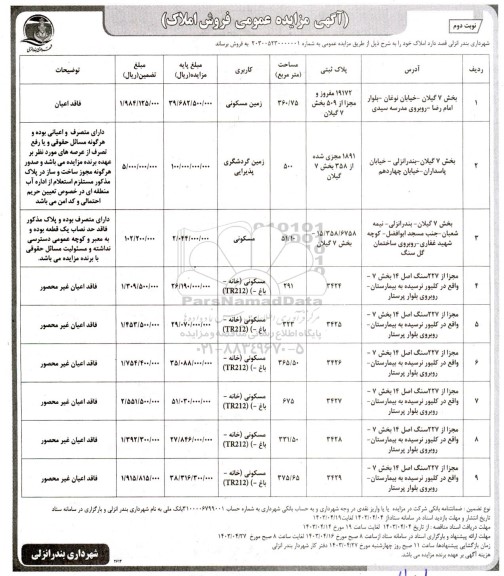 نوبت دوم
(آگهی مزایده عمومی فروش املاک)
شهرداری بندر انزلی قصد دارد املاک خود را به شرح ذیل از طریق مزایده عمومی به شماره ۲۰۳۰۰۵۲۳۰۰۰۰۰۰۱ به فروش برساند
ردیف آدرس پلاک ثبتی مساحت (متر مربع) کاربری مبلغ پایه مزایده(ریال) مبلغ تضمین(ریال) توضیحات
۱ بخش ۷ گیلان -خیابان نوغان -بلوار امام رضا -روبروی مدرسه سیدی ۱۹۱۷۳ مفروز و مجزا از ۵۰۹ بخش ۷ گیلان ۳۶۰/۷۵ زمین مسکونی ۳۹/۶۸۲/۵۰۰/۰۰۰ ۱/۹۸۴/۱۲۵/۰۰۰ فاقد اعیان
۲ بخش ۷ گیلان -بندرانزلی - خیابان پاسداران-خیابان چهاردهم ۱۸۹۱ مجزی شده از ۳۵۸ بخش ۷ گیلان ۵۰۰ زمین گردشگری پذیرایی ۱۰۰/۰۰۰/۰۰۰/۰۰۰ ۵/۰۰۰/۰۰۰/۰۰۰ دارای متصرف و اعیانی بوده و هرگونه مسائل حقوقی و یا رفع تصرف از عرصه های مورد نظر بر عهده برنده مزایده می باشد و صدور هرگونه مجوز ساخت و ساز در پلاک مذکور مستلزم استعلام از اداره آب منطقه ای در خصوص تعیین حریم احتمالی و کد امنی می باشد
۳ بخش ۷ گیلان- بندرانزلی- نیمه شعبان -جنب مسجد ابوالفضل- کوچه شهید غفاری -روبروی ساختمان گل سنگ ۱۵/۳۵۸/۶۷۵۸ بخش ۷ گیلان ۵۱/۱۰ مسکونی ۲/۰۴۴/۰۰۰/۰۰۰ ۱۰۲/۲۰۰/۰۰۰ دارای متصرف بوده و پلاک مذکور فاقد حد نصاب یک قطعه بوده و به معبر و کوچه عمومی دسترسی نداشته و مسئولیت مسائل حقوقی با برنده مزایده می باشد.
۴ مجزا از ۲۲۷سنگ اصل ۱۴ بخش ۷ - واقع در کلیور نرسیده به بیمارستان- روبروی بلوار پرستار ۳۴۲۴ ۲۹۱ مسکونی (خانه - باغ -) (TR212) ۲۶/۱۹۰/۰۰۰/۰۰۰ ۱/۳۰۹/۵۰۰/۰۰۰ فاقد اعیان غیر محصور
۵ مجزا از ۲۲۷سنگ اصل ۱۴ بخش ۷ - واقع در کلیور نرسیده به بیمارستان- روبروی بلوار پرستار ۳۴۲۵ ۳۲۳ مسکونی (خانه - باغ -) (TR212) ۲۹/۰۷۰/۰۰۰/۰۰۰ ۱/۴۵۳/۵۰۰/۰۰۰ فاقد اعیان غیر محصور
۶ مجزا از ۲۲۷سنگ اصل ۱۴ بخش ۷ - واقع در کلیور نرسیده به بیمارستان- روبروی بلوار پرستار ۳۴۲۶ ۳۶۵/۵۰ مسکونی (خانه - باغ -) (TR212) ۳۵/۰۸۸/۰۰۰/۰۰۰ ۱/۷۵۴/۴۰۰/۰۰۰ فاقد اعیان غیر محصور
۷ مجزا از ۲۲۷سنگ اصل ۱۴ بخش ۷ - واقع در کلیور نرسیده به بیمارستان- روبروی بلوار پرستار ۳۴۲۷ ۶۷۵ مسکونی (خانه - باغ -) (TR212) ۵۱/۰۳۰/۰۰۰/۰۰۰ ۲/۵۵۱/۵۰۰/۰۰۰ فاقد اعیان غیر محصور
۸ مجزا از ۲۲۷سنگ اصل ۱۴ بخش ۷ - واقع در کلیور نرسیده به بیمارستان- روبروی بلوار پرستار ۳۴۲۸ ۳۳۱/۵۰ مسکونی (خانه - باغ -) (TR212) ۲۷/۸۴۶/۰۰۰/۰۰۰ ۱/۳۹۲/۳۰۰/۰۰۰ فاقد اعیان غیر محصور
۹ مجزا از ۲۲۷سنگ اصل ۱۴ بخش ۷ - واقع در کلیور نرسیده به بیمارستان- روبروی بلوار پرستار ۳۴۲۹ ۳۷۵/۶۵ مسکونی (خانه - باغ -) (TR212) ۳۸/۳۱۶/۳۰۰/۰۰۰ ۱/۹۱۵/۸۱۵/۰۰۰ فاقد اعیان غیر محصور
ParsNamadData
پایگاه اطلاع رسانی مناقصه و مزایده
۰۲۱-۸۸۳۴۹۶۷۰-۵
نوع تضمین: ضمانتنامه بانکی شرکت در مزایده یا واریز نقدی در وجه شهرداری و به حساب بانکی شهرداری به شماره حساب ۳۱۰۰۰۰۶۷۹۹۰۰۱بانک ملی به نام شهرداری بندر انزلی و بارگزاری در سامانه ستاد
تاریخ انتشار و مهلت بازدید اسناد در سامانه ستاداز ۱۴۰۳/۰۴/۰۴ لغایت۱۴۰۳/۰۴/۱۹
مهلت دریافت اسناد مناقصه : از تاریخ ۱۴۰۳/۰۴/۰۴ لغایت ساعت ۱۹ مورخ ۱۴۰۳/۰۴/۱۴
مهلت ارائه پیشنهاد و بارگزاری اسناد در سامانه ستاد ازساعت ۸ صبح مورخ ۱۴۰۳/۰۴/۱۶ لغایت ساعت ۸ صبح مورخ ۱۴۰۳/۰۴/۲۷
زمان بازگشایی پیشنهادها: ساعت ۱۱ صبح روز چهارشنبه مورخ ۱۴۰۳/۰۴/۲۷ دفتر کار شهردار بندر انزلی
هزینه آگهی بر عهده برنده مزایده می باشد.
شهرداری بندرانزلی